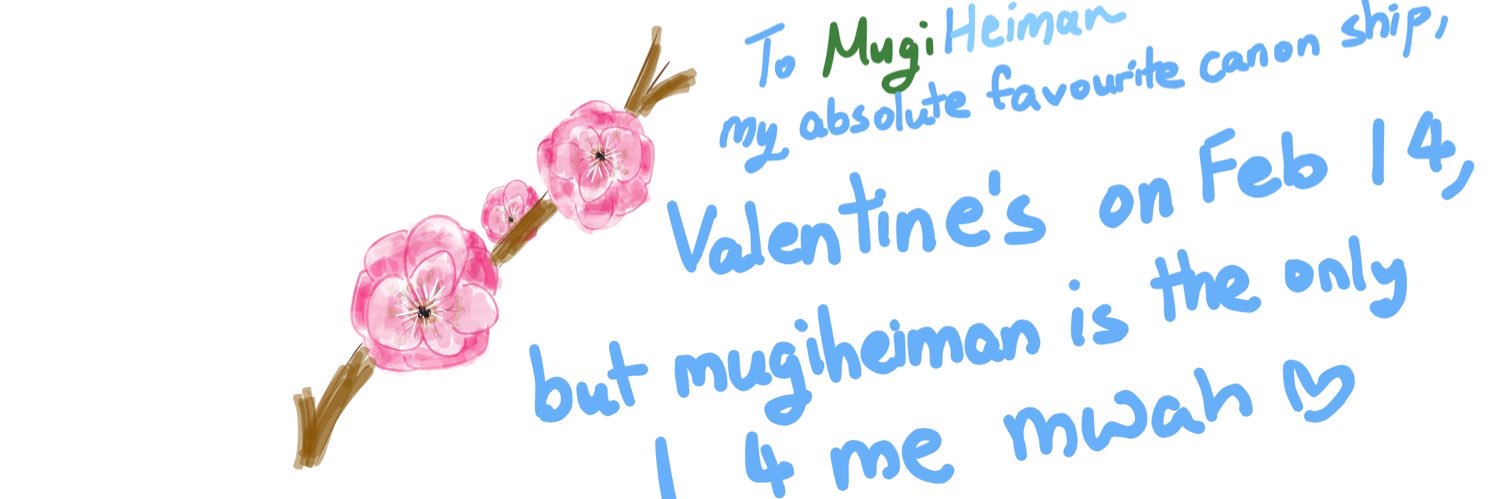 To MugiHeiman
my absolute favourite canon ship,
Valentine's on Feb 14,
but mugiheiman is the only
1 4 me mwah ♡